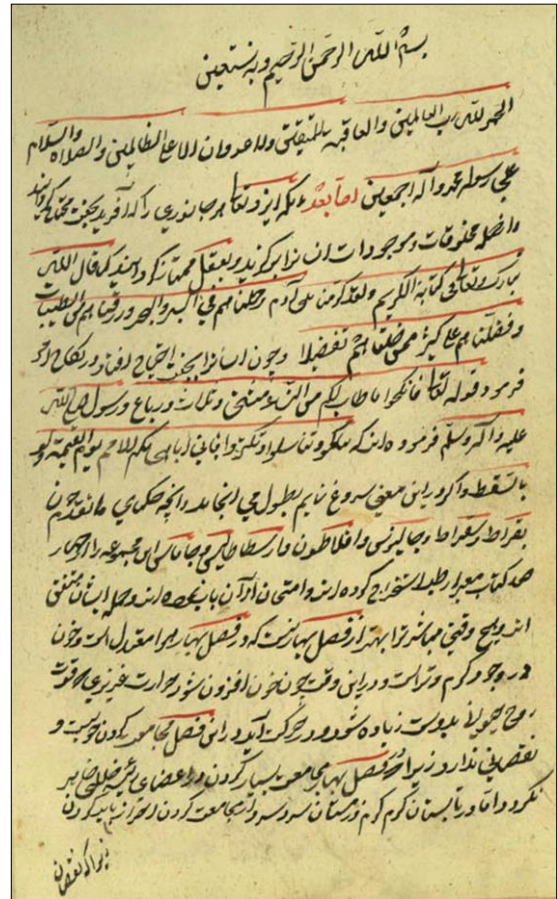 بسم الله الرحمن الرحیم وبه نستعین
الحمد لله رب العالمین والعاقبة للمتقین ولا عدوان الا علی الظالمین والصلاة والسلام
علی رسوله محمد وآله اجمعین اما بعد ایزد تعالی هر جانوری را که آفرید بجفت محتاج گردانید
و از جمله مخلوقات و موجودات انسانرا برگزید و بعقل ممتاز گردانید کما قال الله
تبارک وتعالی فی کتابه الکریم ولقد کرمنا بنی آدم وحملناهم فی البر والبحر ورزقناهم من الطیبات
وفضلناهم علی کثیر ممن خلقنا تفضیلا و چون انسانرا بجفت احتیاج افتاد در نکاح
فرمود قوله تعالی فانکحوا ما طاب لکم من النساء مثنی وثلاث ورباع ورسول صلی الله
علیه وآله وسلم فرموده اند که تناکحوا تناسلوا فانی اباهی بکم الامم یوم القیمة ولو
بالسقط و اگر در این معنی شروع نمایم بطول می انجامد و آنچه حکمای ما تقدم چون
بقراط و سقراط و جالینوس و افلاطون و ارسطاطالیس و جاماسب این مجموعه را از
صد کتاب معتبر استخراج کرده اند و امتحان آن نموده اند و جمله متفق
اند و هیچ وقتی مباشرت را بهتر از فصل بهار نیست که در فصل بهار هوا معتدل است و خون
در وجود گرم و تر است و در این وقت چون خون افزون شود حرارت غریزی و قوت
روح زیاده شود و در حرکت آید در این فصل مجامعت کردن خوبست و
نقصانی ندارد زیرا که در فصل بهار مجامعت بسیار کردن در اعضای خللی ظاهر
نگردد و اما در تابستان گرم و زمستان سرد از مجامعت کردن احتراز باید کردن
زیرا که نقصان